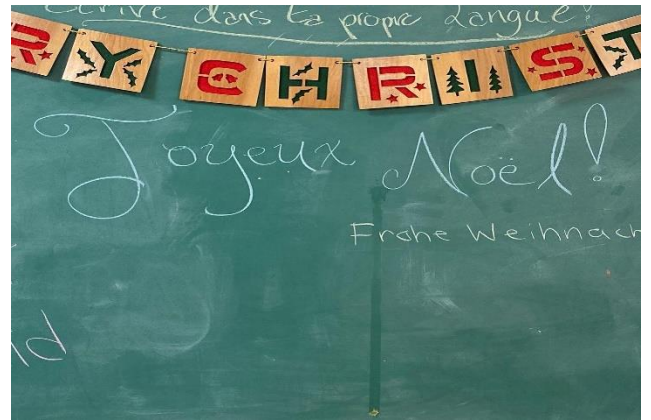 Écrive dans ta propre Langue!
RY CHRIST
Joyeux Noël!
Frohe Weihnach
ld